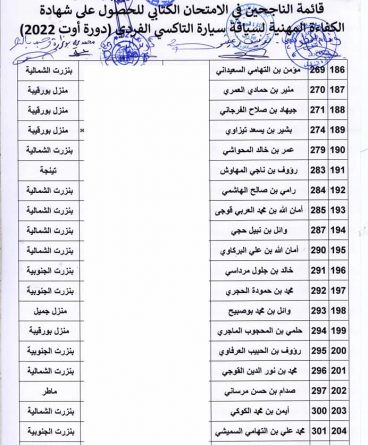 قائمة الناجحين في الامتحان الكتابي للحصول على شهادة
الكفاءة المهنية لسياقة سيارة التاكسي الفردي (دورة أوت 2022)
186 269 مؤمن بن التهامي السعيداني بنزرت الشمالية
187 270 منير بن حمادي العمري منزل بورقيبة
188 271 جيهاد بن صلاح الفرجاني منزل بورقيبة
189 274 بشير بن يسعد تيزاوي منزل بورقيبة
190 279 عمر بن خالد المحواشي بنزرت الشمالية
191 283 رؤوف بن ناجي المهاوش تينجة
192 284 رامي بن صالح الهاشمي بنزرت الشمالية
193 285 أمان الله بن محمد العربي قوجى بنزرت الشمالية
194 287 وائل بن نبيل حجي بنزرت الشمالية
195 290 أمان الله بن علي البركاوي بنزرت الشمالية
196 291 خالد بن جلول مرداسي بنزرت الجنوبية
197 292 محمد بن حمودة الحجري بنزرت الجنوبية
198 293 وائل بن محمد بوصبيح منزل جميل
199 294 حلمي بن المحجوب الماجري منزل بورقيبة
200 295 رؤوف بن الحبيب العرفاوي بنزرت الجنوبية
201 296 محمد بن نور الدين القوجي بنزرت الشمالية
202 297 صدام بن حسن مرساني ماطر
203 300 أيمن بن محمد الكوكي بنزرت الشمالية
204 301 محمد علي بن التهامي السميشي بنزرت الجنوبية